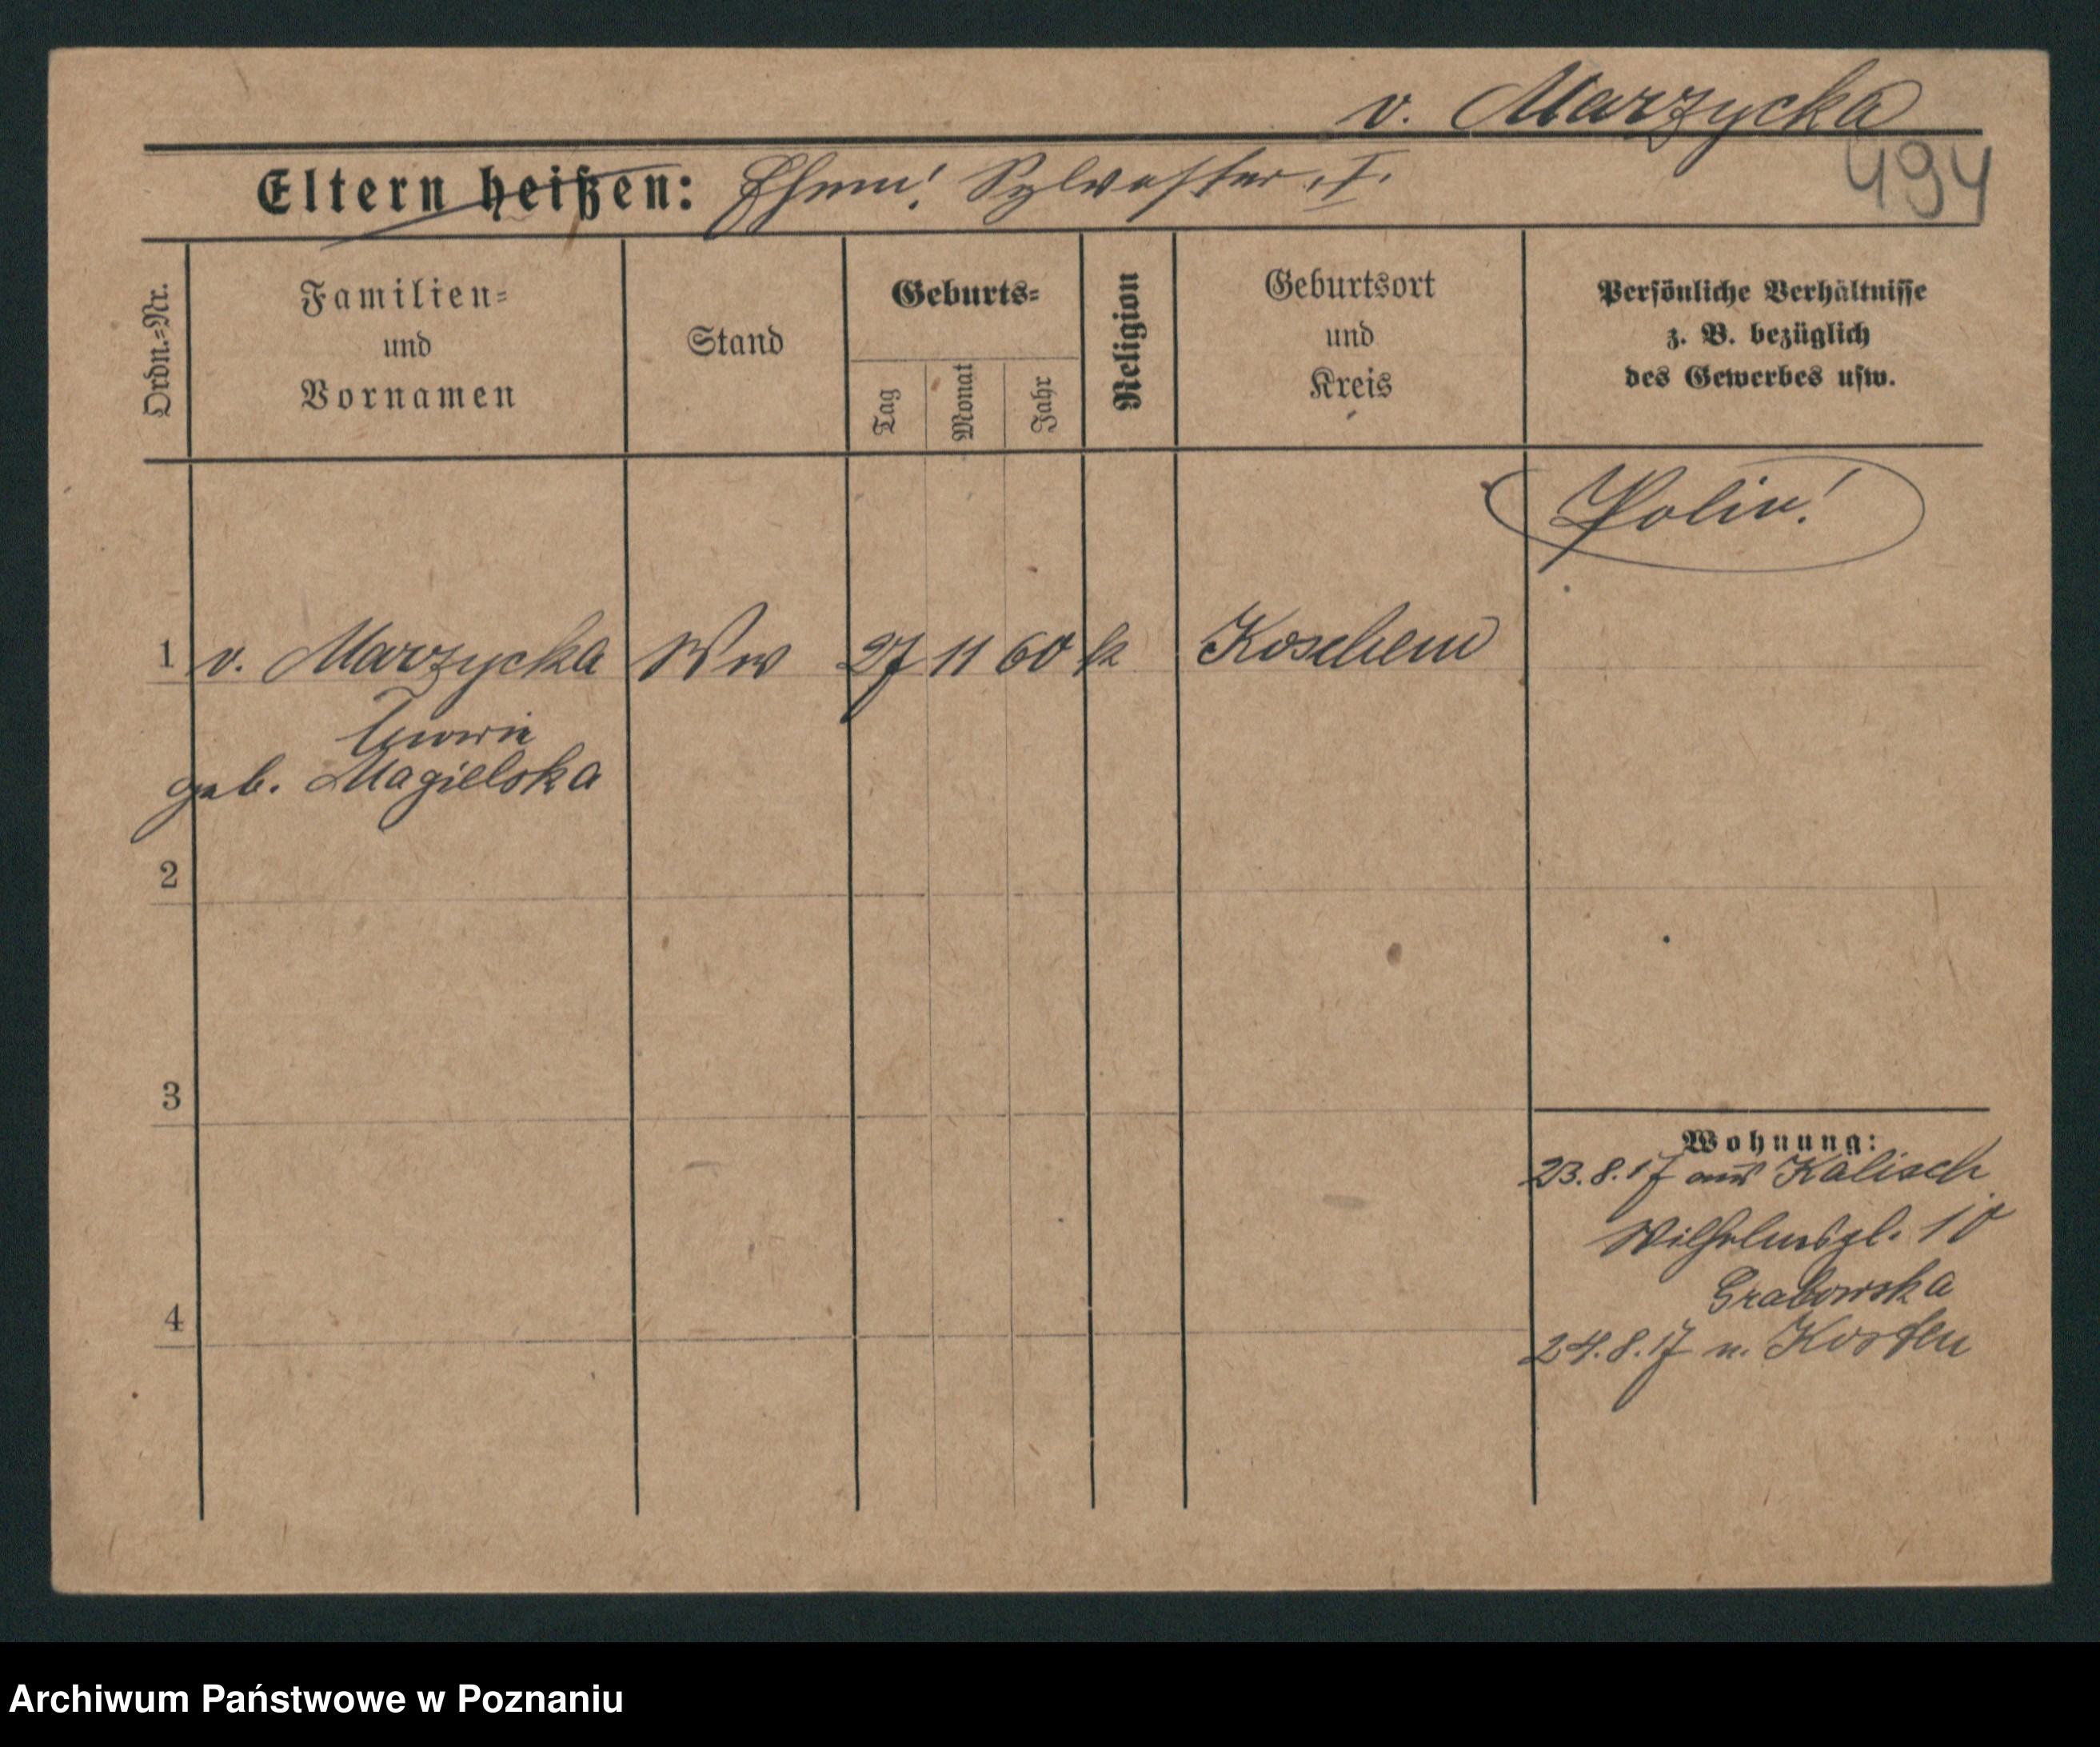 v. Marzycka
494
Eltern heißen: Ehem! Sylvester. I.
Ordn.=Nr.
Familien=
und
Vornamen
Stand
Geburts=
Tag
Monat
Jahr
Religion
Geburtsort
und
Kreis
Persönliche Verhältnisse
z. B. bezüglich
des Gewerbes usw.
1 v. Marzycka Ww 27 11 60 k Koschem
geb. Magielska
2
3
4
Wohnung:
23.8.17 aus Kalisch
Wilhelmspl. 10
Grabowska
24.8.17 n. Kosten
Archiwum Państwowe w Poznaniu